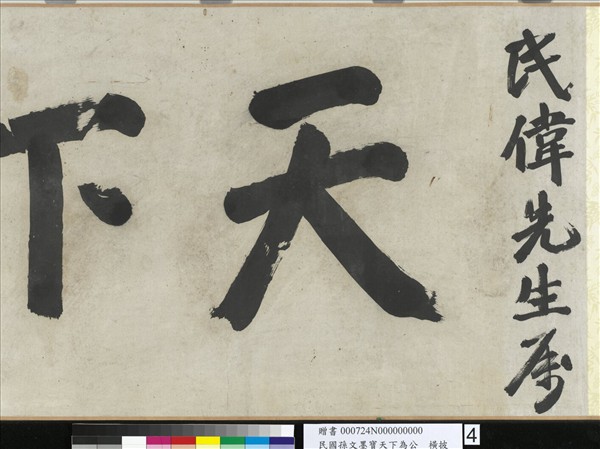 民偉先生属
天下
贈書 000724N000000000
民國孫文墨寶天下為公 橫披
4